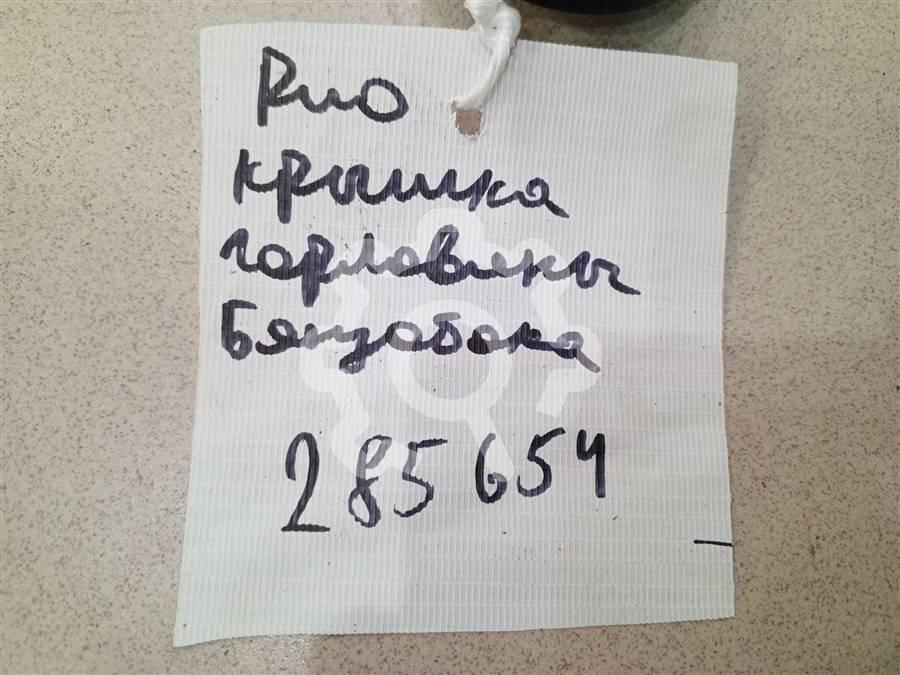 Рио
крышка
горловины
Бензобака
285654